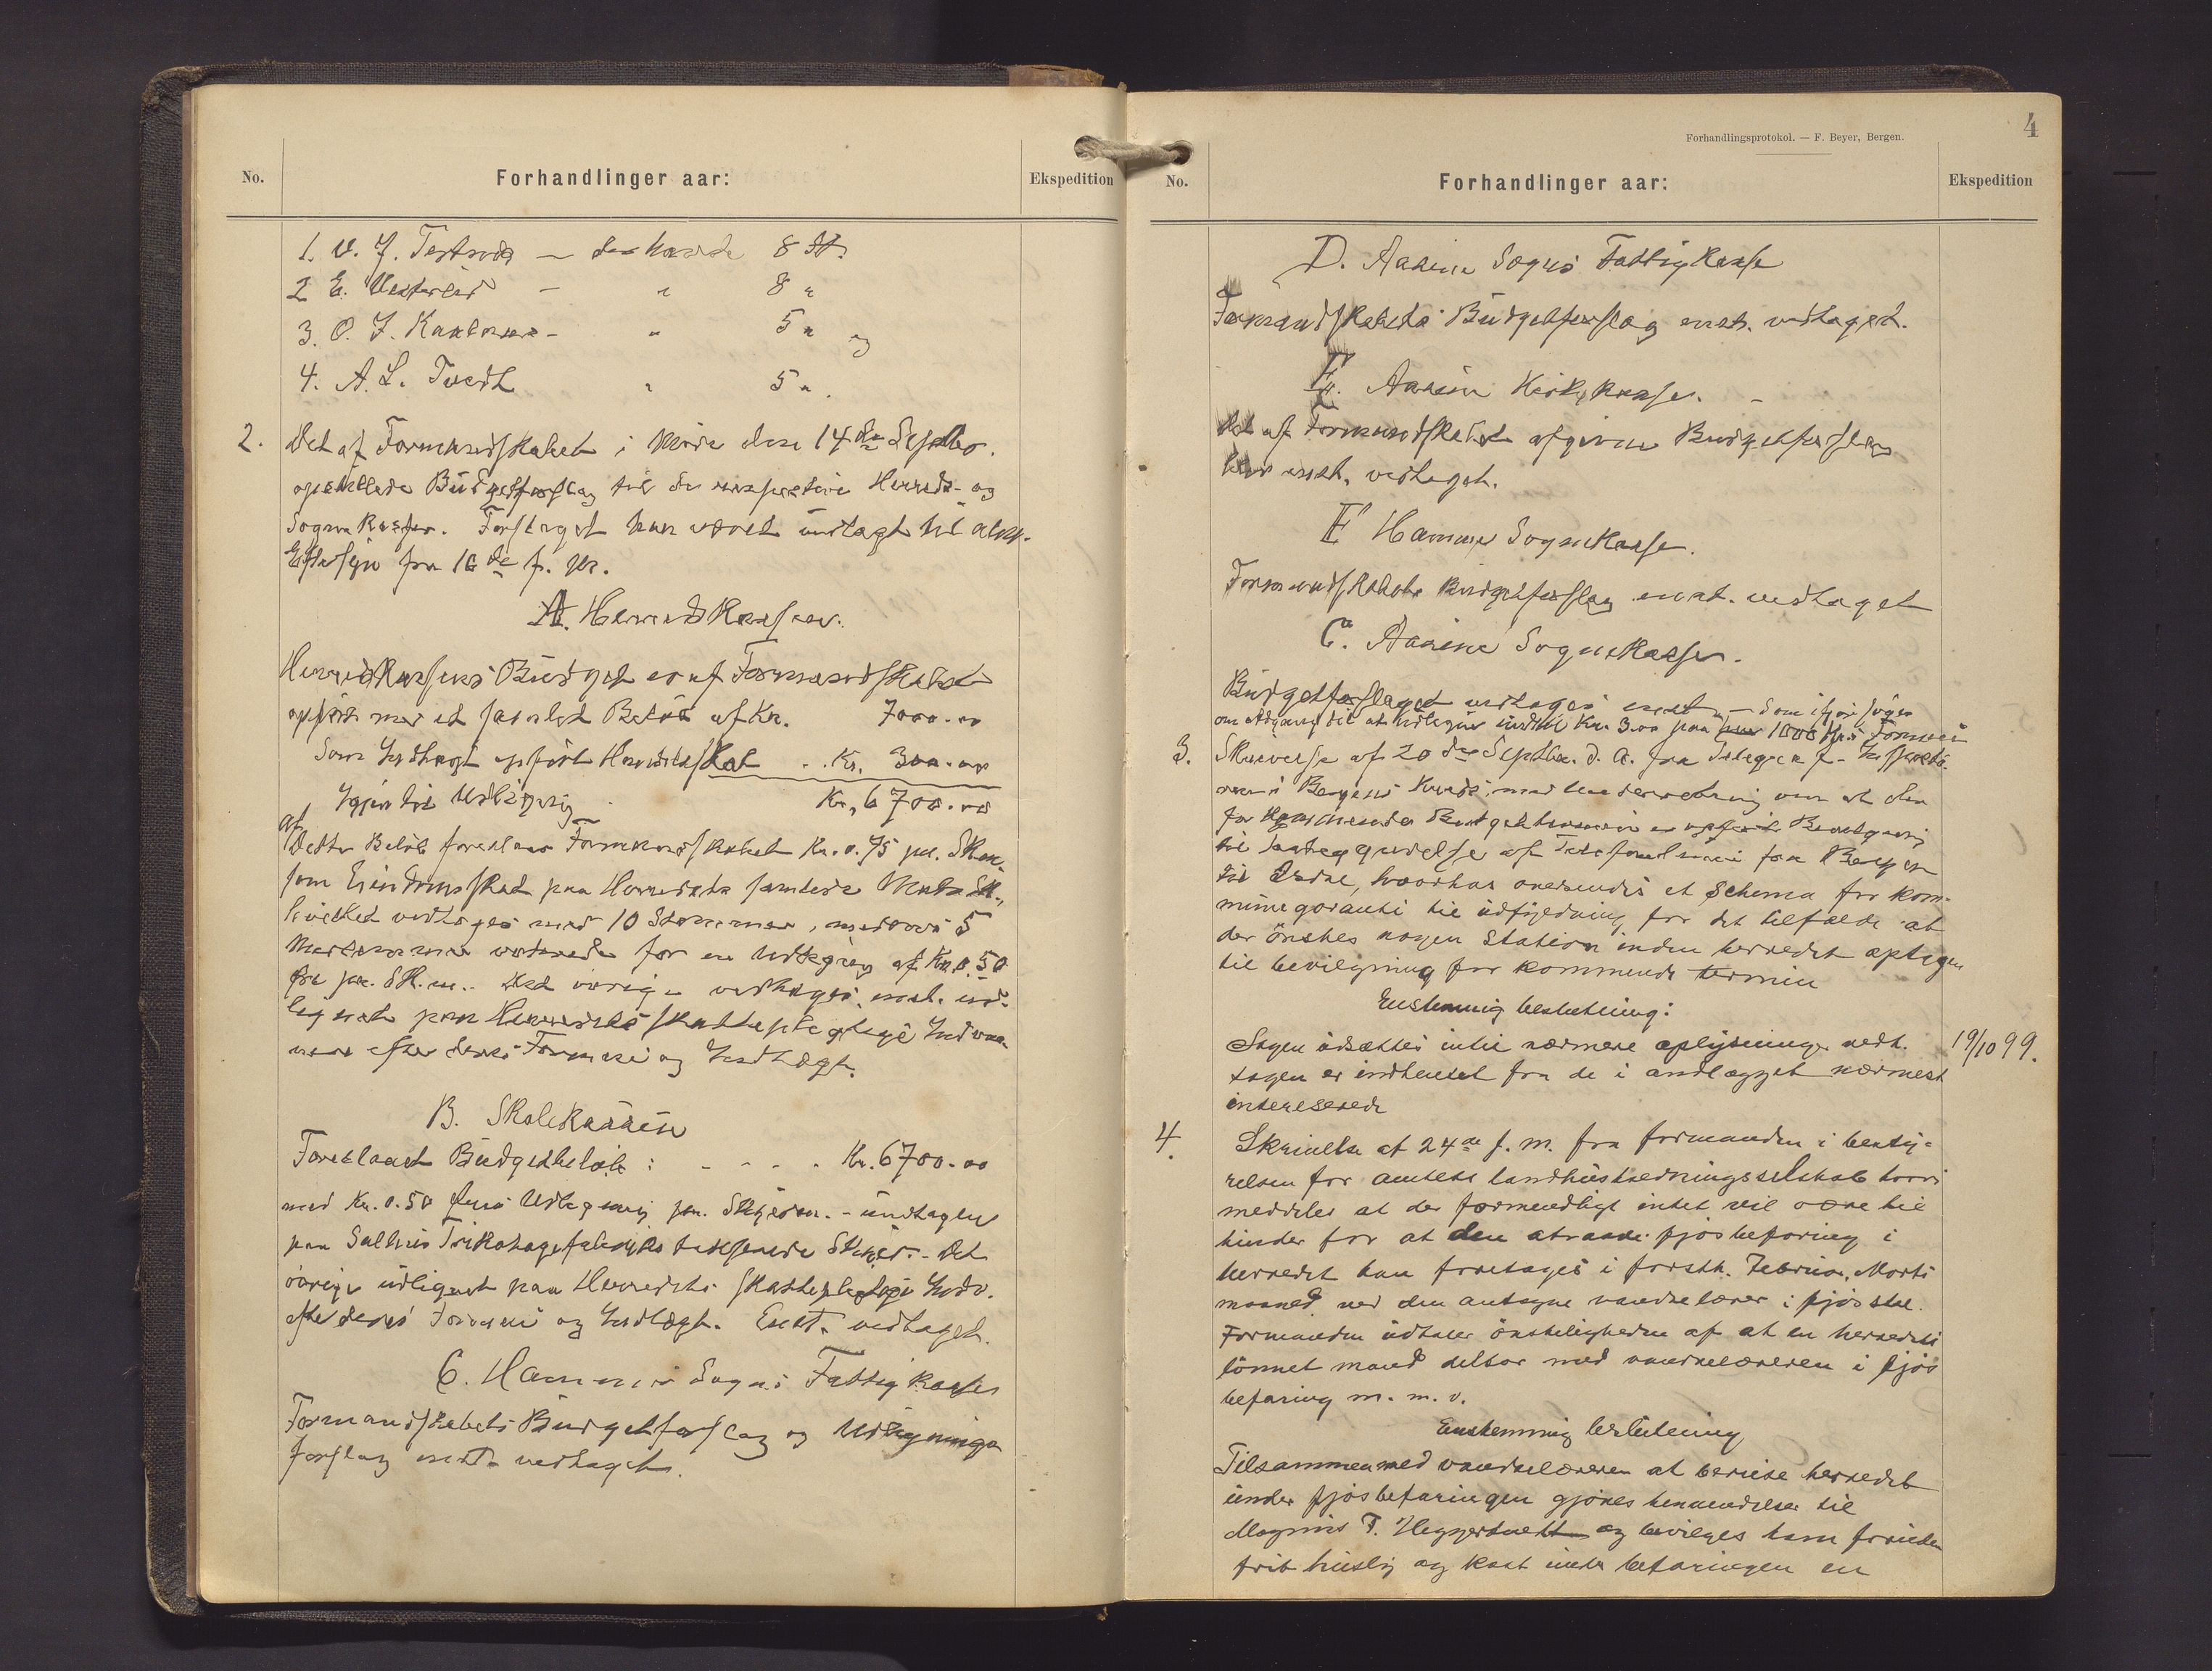 No.
Forhandlinger aar:
Ekspedition
1. V. J. Tertnæs — der havde 8 St.
2 E. Vesterlid — " 8 "
3. O. J. — " 5 " og
4. A. L. Tvedt " 5 ".
2. Det af Formandskabet i Møde den 14de Septbr.
opstillede Büdgetforslag til de respektive Herreds- og
Sognekasser. Forslaget har været üdlagt til alm.
Eftersyn fra 16de f. M.
A. Herredskassen.
Herredskassens Büdget er af Formandskabet
opført med et samlet Beløb af Kr. 7000.00
Som Indtægt opført Herredsskat .. Kr. 300.00
Igjen til Udligning Kr. 6700.00
af
Dette Beløb foreslaar Formandskabet Kr. 0.75 pr. Skm.
som Eiendomsskat paa Herredets samlede Matr. Sk.,
hvilket vedtoges med 10 Stemmer, medens 5
Medlemmer voterede for en Udligning af Kr. 0.50
øre pr. Sk.m.. Det øvrige vedtoges enst. üd-
lignet paa Herredets skattepligtige Indvaa-
nere efter deres Formue og Indtægt.
B. Skolekassen
Foreslaaet Büdgetbeløb: - - - . Kr. 6700.00
med Kr. 0.50 Øres Udligning pr. Skjm. - undtagen
paa Salhus Trikotagefabriks Skjm. - Det
øvrige üdlignet paa Herredets skattepligtige Indv.
efter deres Formue og Indtægt. Enst. vedtaget.
C. Hammers Sogns Fattigkasse
Formandskabets Büdgetforslag og Udlignings
forslag enst. vedtaget.
Forhandlingsprotokol. — F. Beyer, Bergen.
4
No.
Forhandlinger aar:
Ekspedition
D. Aasene Sogns Fattigkasse
Formandskabets Büdgetforslag enst. vedtaget.
E. Aasene Kirkekasse. -
Det af Formandskabet afgivne Budgetforslag
blev enst. vedtaget.
F Hammer Sognekasse.
Formandskabets Büdgetforslag enst. vedtaget
G. Aasene Sognekasse.
Büdgetforslaget vedtoges enst. - Som ifjor søges
om Adgang til at üdligne indtil Kr. 3.00 paa hver 1000 Kr.s Formue
3. Skrivelse af 20de Septbr. d. A. fra Telegraf-Inspektø-
ren i Bergens Kreds, med Underretning om at den
for kommende Budgettermin er opført Bevilgning
til Anlæggelse af Telefonlinie fra Bergen
til Østre, hvorhos oversendes et Schema for kom-
münegaranti til üdfyldning for det tilfælde at
der ønskes nogen Station inden herredet optagen
til bevilgning for kommende termin
Enstemmig beslutning:
Sagen üdsættes indtil nærmere oplysninger vedk.
sagen er indhentet fra de i anlægget nærmest
interesserede
19/10 99.
4. Skrivelse af 24de f. m. fra formanden i besty-
relsen for amtets landhüsholdningsselskab hvori
meddeles at der formentligt intet vil være til
hinder for at den attraaede fjøsbefaring i
herredet kan foretages i førstk. Februar, Marts
maaned ved den antagne vandrelærer i fjøsstel.
Formanden üdtaler ønskeligheden af at en herredets
lønnet mand deltar med vandrelæreren i fjøs
befaring m. m. v.
Enstemmig beslutning
Tilsammen med vandrelæreren at bereise herredet
ünder fjøsbefaringen gjøres henvendelse til
Magnus T. Heggertveit og bevilges ham foruden
frit hüsly og kost ünder befaringen en